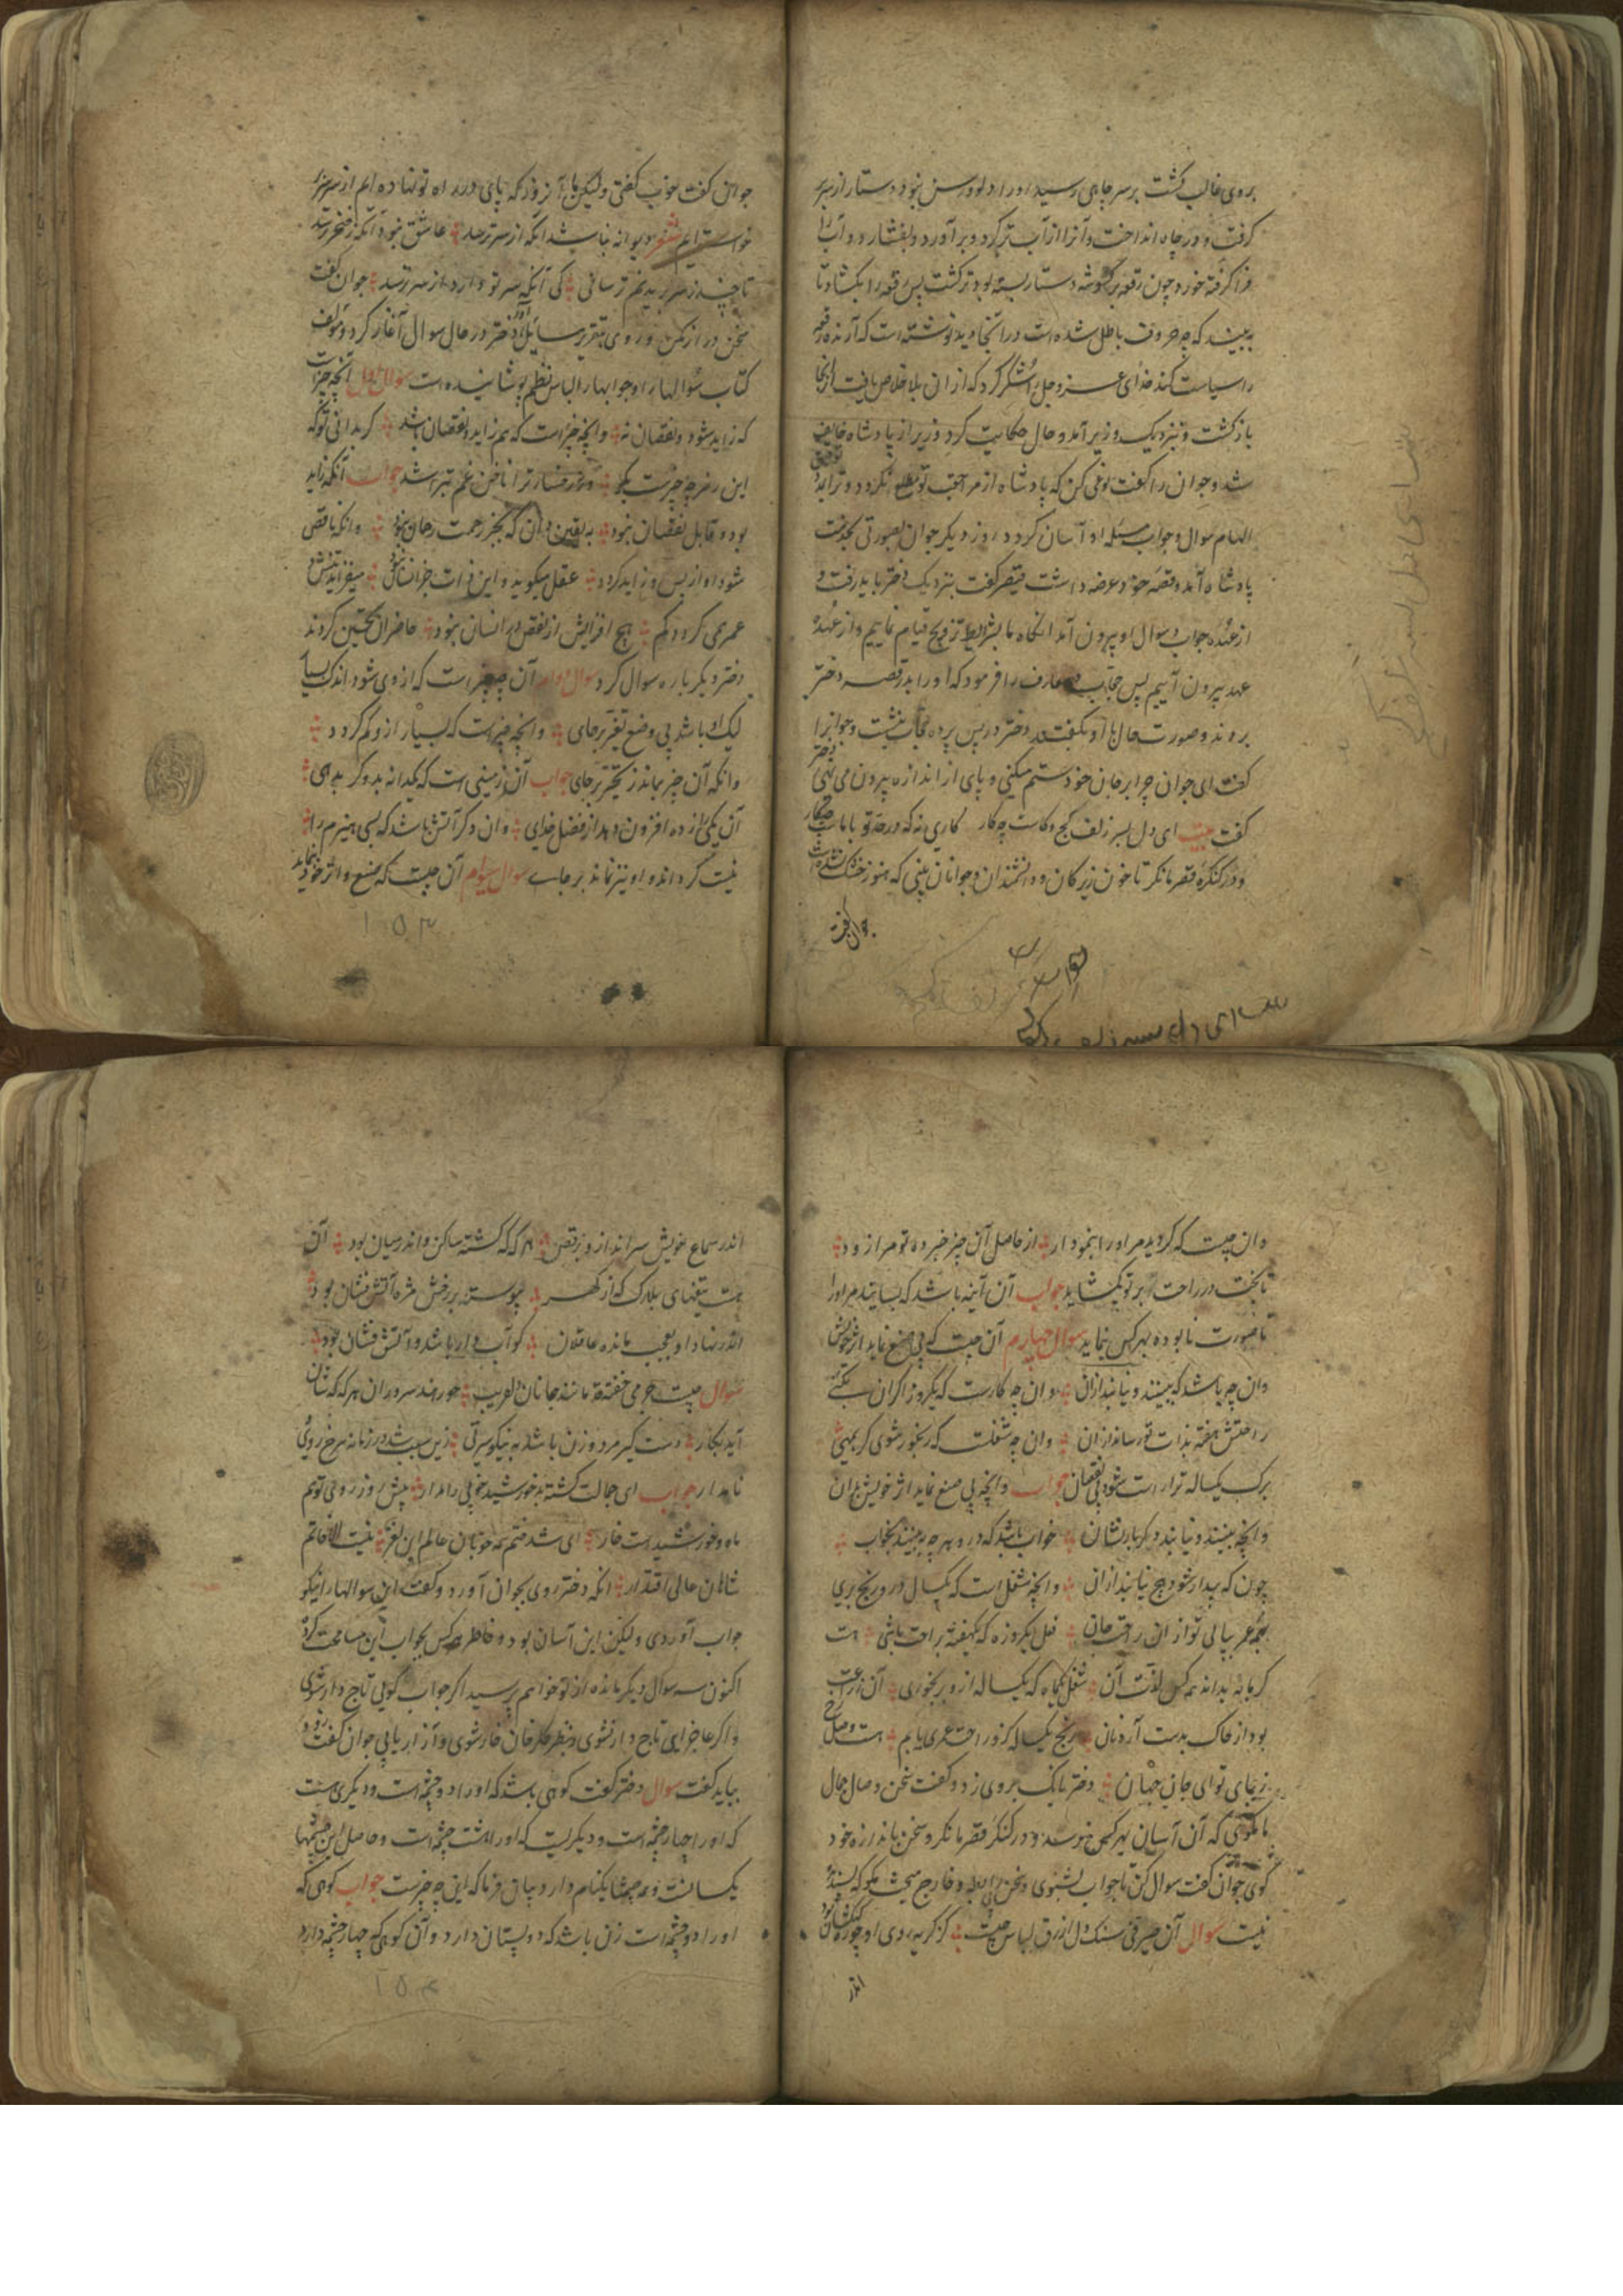 بروی غالب گشت بر سر چاهی رسید او را دلو و رسن نبود دستار از سر
گرفت و در چاه انداخت و آنرا از آب تر کرد و برآورد و بفشارد و آب را
فرا گرفته خورد چون رقعه بر گوشه دستار بسته بود تر گشت پس رقعه را بکشاد تا
به بیند که چه حروف باطل شده است در آنجا دید نوشته است که آرنده رقعه
را سیاست کنند خدای عز و جل را شکر کرد که از ان بلا خلاص یافت از آنجا
بازگشت و بنزدیک وزیر آمد و حال حکایت کرد وزیر از پادشاه خایف
شد و جوان را گفت توقف کن که پادشاه از مراجعت تو مطلع نگردد و ترا ایزد
الهام سوال و جواب مسئله او آسان گردد روز دیگر جوان بصورتی بخدمت
پادشاه آمد و قصه خود عرضه داشت قیصر گفت بنزدیک دختر باید رفت و
از عهده جواب و سوال او بیرون آمد آنگاه ما بشرایط تزویج قیام نماییم و از عهده
عهد بیرون آییم پس حاجب عارف را فرمود که او را بدر قصر دختر
بردند و صورت حال باو بگفتند دختر در پس پرده حجاب بنشست و جوانرا
گفت ای جوان چرا بر جان خود ستم میکنی و پای از اندازه بیرون می نهی دختر
گفت بیت ای دل بسر زلف کج و کاست چه کار کاری نه که در خورد تو باماست چکار
و در کنگره قصر ما نگر تا خون زیرکان و دانشمندان و جوانان بینی که هنوز خشک نشده است
جوان گفت
جوان گفت خوب گفتی ولیکن ما آن روز که پای در راه تو نهاده ایم از سر
خواسته ایم شعر دیوانه نباشد آنکه از سر ترسد عاشق نبود آنکه ز خنجر ترسد
تا چند ز سر بریدنم ترسانی کی آنکه سر تو دارد از سر ترسد جوان گفت
سخن دراز مکن و روی بتقریر مسایل آور دختر در حال سوال آغاز کرد و مولف
کتاب سوالها را و جوابها را لباس نظم پوشانیده است سوال اول آنچه چیزاست
که زاید شود و نقصان نه وانچه چیز است که هم زاید و نقصان باشد گر بدانی تو که
این رمز چه چیزست بگو ورنه رخسار ترا ناخن غم بتراشد جواب آنکه زاید
بود و قابل نقصان نبود به یقین دان که بجز رحمت رحمان نبود وانکه ناقص
شود او از پس و زاید گردد عقل میگوید و این ذات جز انسان نبود میفزاید تنش و
عمر همی گردد کم هیچ افزایش از نقص در انسان نبود حاضران تحسین کردند
دختر دیگر باره سوال کرد سوال دوم آن چه چیز است که از وی شود اندک بسیار
لیک باشد بی وضع تغیر بر جای وانچه چیز است که بسیار از و کم گردد
وانکه آن چیز بماند ز تحیر بر جای جواب آن زمینی است که یکدانه بدو گر بدهی
آن یکی را ز ده افزون دهد از فضل خدای وان دگر آتش باشد که بسی هیزم را
نیست گرداند و او نیز نماند بر جاے سوال سیوم آن چیست که صنع و اثر خود بنماید
۱۵۳
وان چیست که گروید مر او را بنمودار از حاصل آن چیز خبر ده تو مر از ود
تا بخت در راحت بر تو بکشاید جواب آن آینه باشد که بسایند مر او را
تا صورت نابوده بهر کس بنماید سوال چهارم آن چیست که بی صنع نماید اثر خویش
وان چه باشد که ببینند و نیابند ازان وان چه کارست که یکروز گران سنگتی
راحتش هفته بذات تو رساند از ان وان چه شغلست که رنجور شوی گر بمهی
برگ یکساله ترا راست شود بی نقصان جواب وانچه بی صنع نماید اثر خویش بدان
وانچه ببینند و نیابند دگر بار نشان خواب باشد که در و هر چه ببینند بخواب
چون که بیدار شود هیچ نیابند ازان وانچه شغل است که یکسال در و رنج بری
بهمه عمر بیابی تو از ان راحت جان فعل یکروزه که یکهفته براحت باشی هست
گرمابه بداند همه کس لذت آن شغل یکماه که یکساله از و بر بخوری آن زراعت
بود از خاک بدست آرد نان رنج یکساله کزو راحت عمری یابم هست وصل رخ
زیبای تو ای جان جهان دختر بانگ بروی زد و گفت سخن وصال جمال
ما مگوی که آن آسان بهر کس نرسد و در کنگره قصر ما نگر و سخن باندازه خود
گوی جوان گفت سوال کن تا جواب بشنوی و سخن و خارج مبحث مگو که پسندیده
نیست سوال آن صیرفی سنگ دل ازرق لباس چیست کز گریه روی او چو ره کهکشان بود
اندر
اندر سماع خویش سر اندازد و برقص هر که که گشته ساکن و اندر میان بود آن
هست تیغهای بلارک که از گهر پیوسته بر رخش مژه آتش نشان بود
اندر نهاد او بعجب مانده عاقلان کو آب دار باشد و آتش فشان بود
سوال چیست جرمی خفته مانند جانان دلفریب خورند سروران هر که که شان
آید بکار دست گیر مرد و زن باشد به نیکو سیرتی زین سبب شد در زمانه سرخ روی
نامدار جواب ای جمالت گشته بر خورشید خوبی را مدار پیش روز روی توهم
ماه و خورشیدست خار ای شده ختم همه خوبان عالم این لغز نیست الا خاتم
شاهان عالی اقتدار آنکه دختر روی بجوان آورد و گفت این سوالها را نیکو
جواب آوردی ولیکن این آسان بود و خاطر هر کس بجواب این مسامحت کردی
اکنون سه سوال دیگر مانده از تو خواهم پرسید اگر جواب گویی تاج دار شوی
و اگر عاجز آیی تاج دار نشوی و بنظر خلق خار شوی و آزار یابی جوان گفت زود
بیاید گفت سوال دختر گفت کوهی باشد که او را دو چشمه است و دیگری هست
که او را چهار چشمه است و دیگریست که او را هشت چشمه است و حاصل این چشمها
یکسانست و همه چشمها یکنام دارد بیان فرما که این چه چیزست جواب کوهی که
او را دو چشمه است زن باشد که دو پستان دارد و آن کوهی که چهار چشمه دارد
۱۵۴